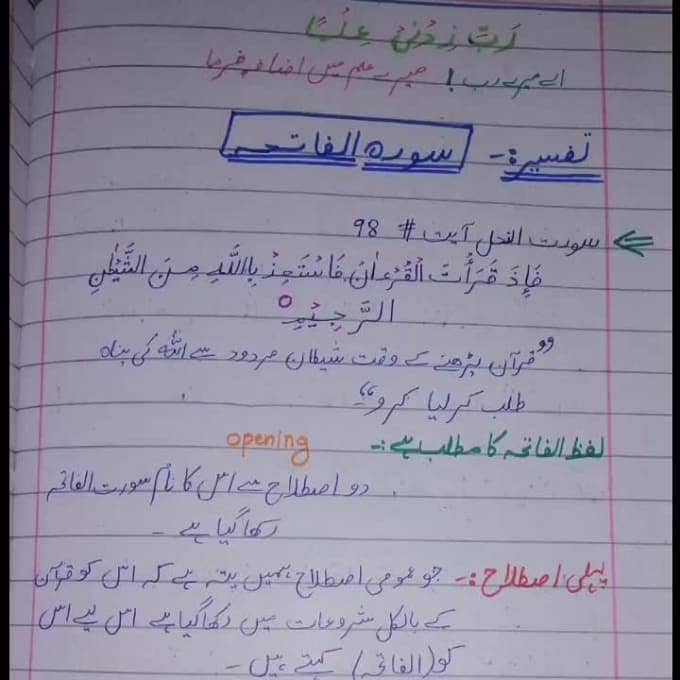 رَبِّ زِدْنِيْ عِلْمًا
اے میرے رب! میرے علم میں اضافہ فرما
تفسیر:- سورہ الفاتحہ
سورت النحل آیت # 98
فَإِذَ قَرَأْتَ الْقُرْءَانَ فَاسْتَعِذْ بِااللَّهِ مِنَ الشَّيْطٰنِ
الرَّجِيْمِ
"قرآن پڑھنے کے وقت شیطان مردود سے اللہ کی پناہ
طلب کر لیا کرو"
لفظ الفاتحہ کا مطلب ہے:- opening
دو اصطلاح سے اس کا نام سورت الفاتحہ
رکھا گیا ہے -
پہلی اصطلاح:- جو عمومی اصطلاح ہمیں پتہ ہے کہ اس کو قرآن
کے بالکل شروعات میں رکھا گیا ہے اس لیے اس
کو (الفاتحہ) کہتے ہیں -